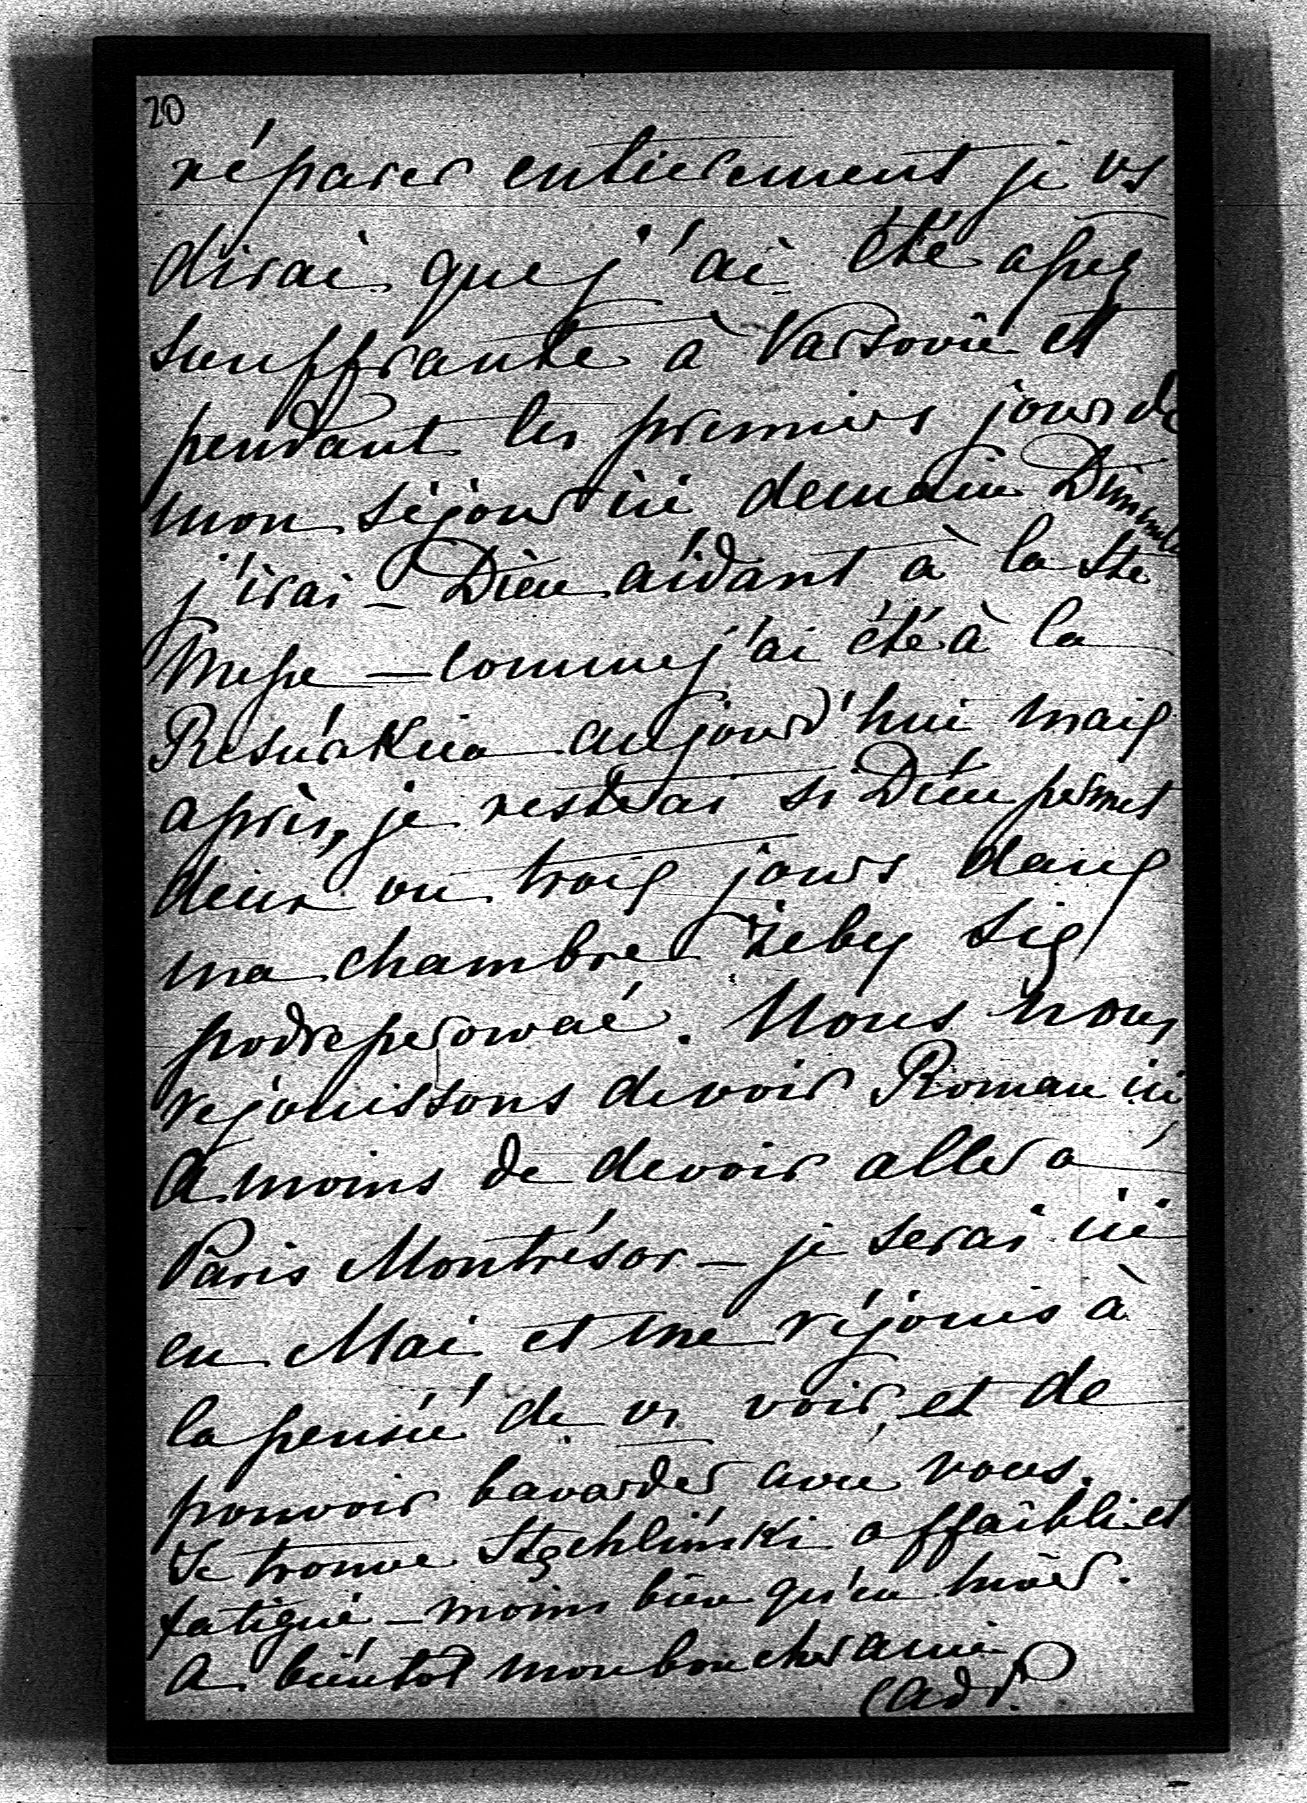 20
réparer entierement je vs
dirai que j'ai été assez
souffrante à Varsovie et
pendant les premiers jours de
mon séjour ici demain Dimanche
j'irai – Dieu aidant à la Ste
Messe – comme j'ai été à la
Resurekcia aujourd'hui mais
après, je resterai si Dieu permet
deux ou trois jours dans
ma chambre żeby się
podreperować. Nous nous
rejouissons de voir Roman ici
A moins de devoir aller à
Paris Montrésor – je serai ici
en Mai et me réjouis à
la pensée de vs voir, et de
pouvoir bavarder avec vous.
Je trouve Stęchliński affaibli et
fatigué – moins bien qu'en hiver.
A bientot mon bon cher ami